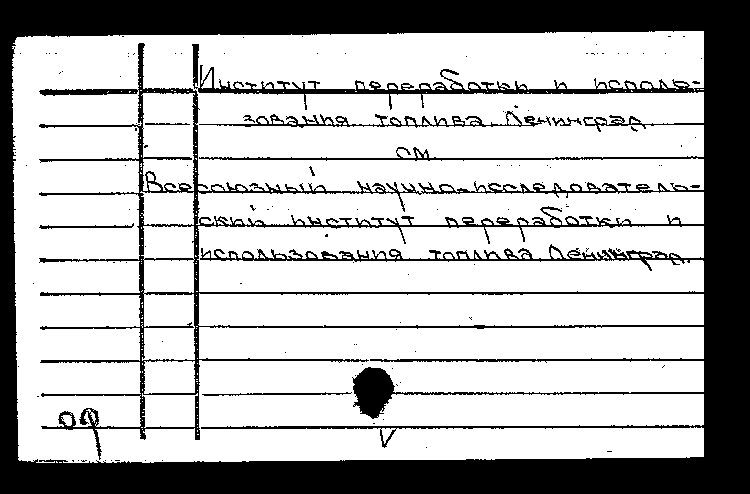 Институт переработки и исполь-
зования топлива. Ленинград.
см.
Всесоюзный научно-исследователь-
ский институт переработки и
использования топлива. Ленинград.
V